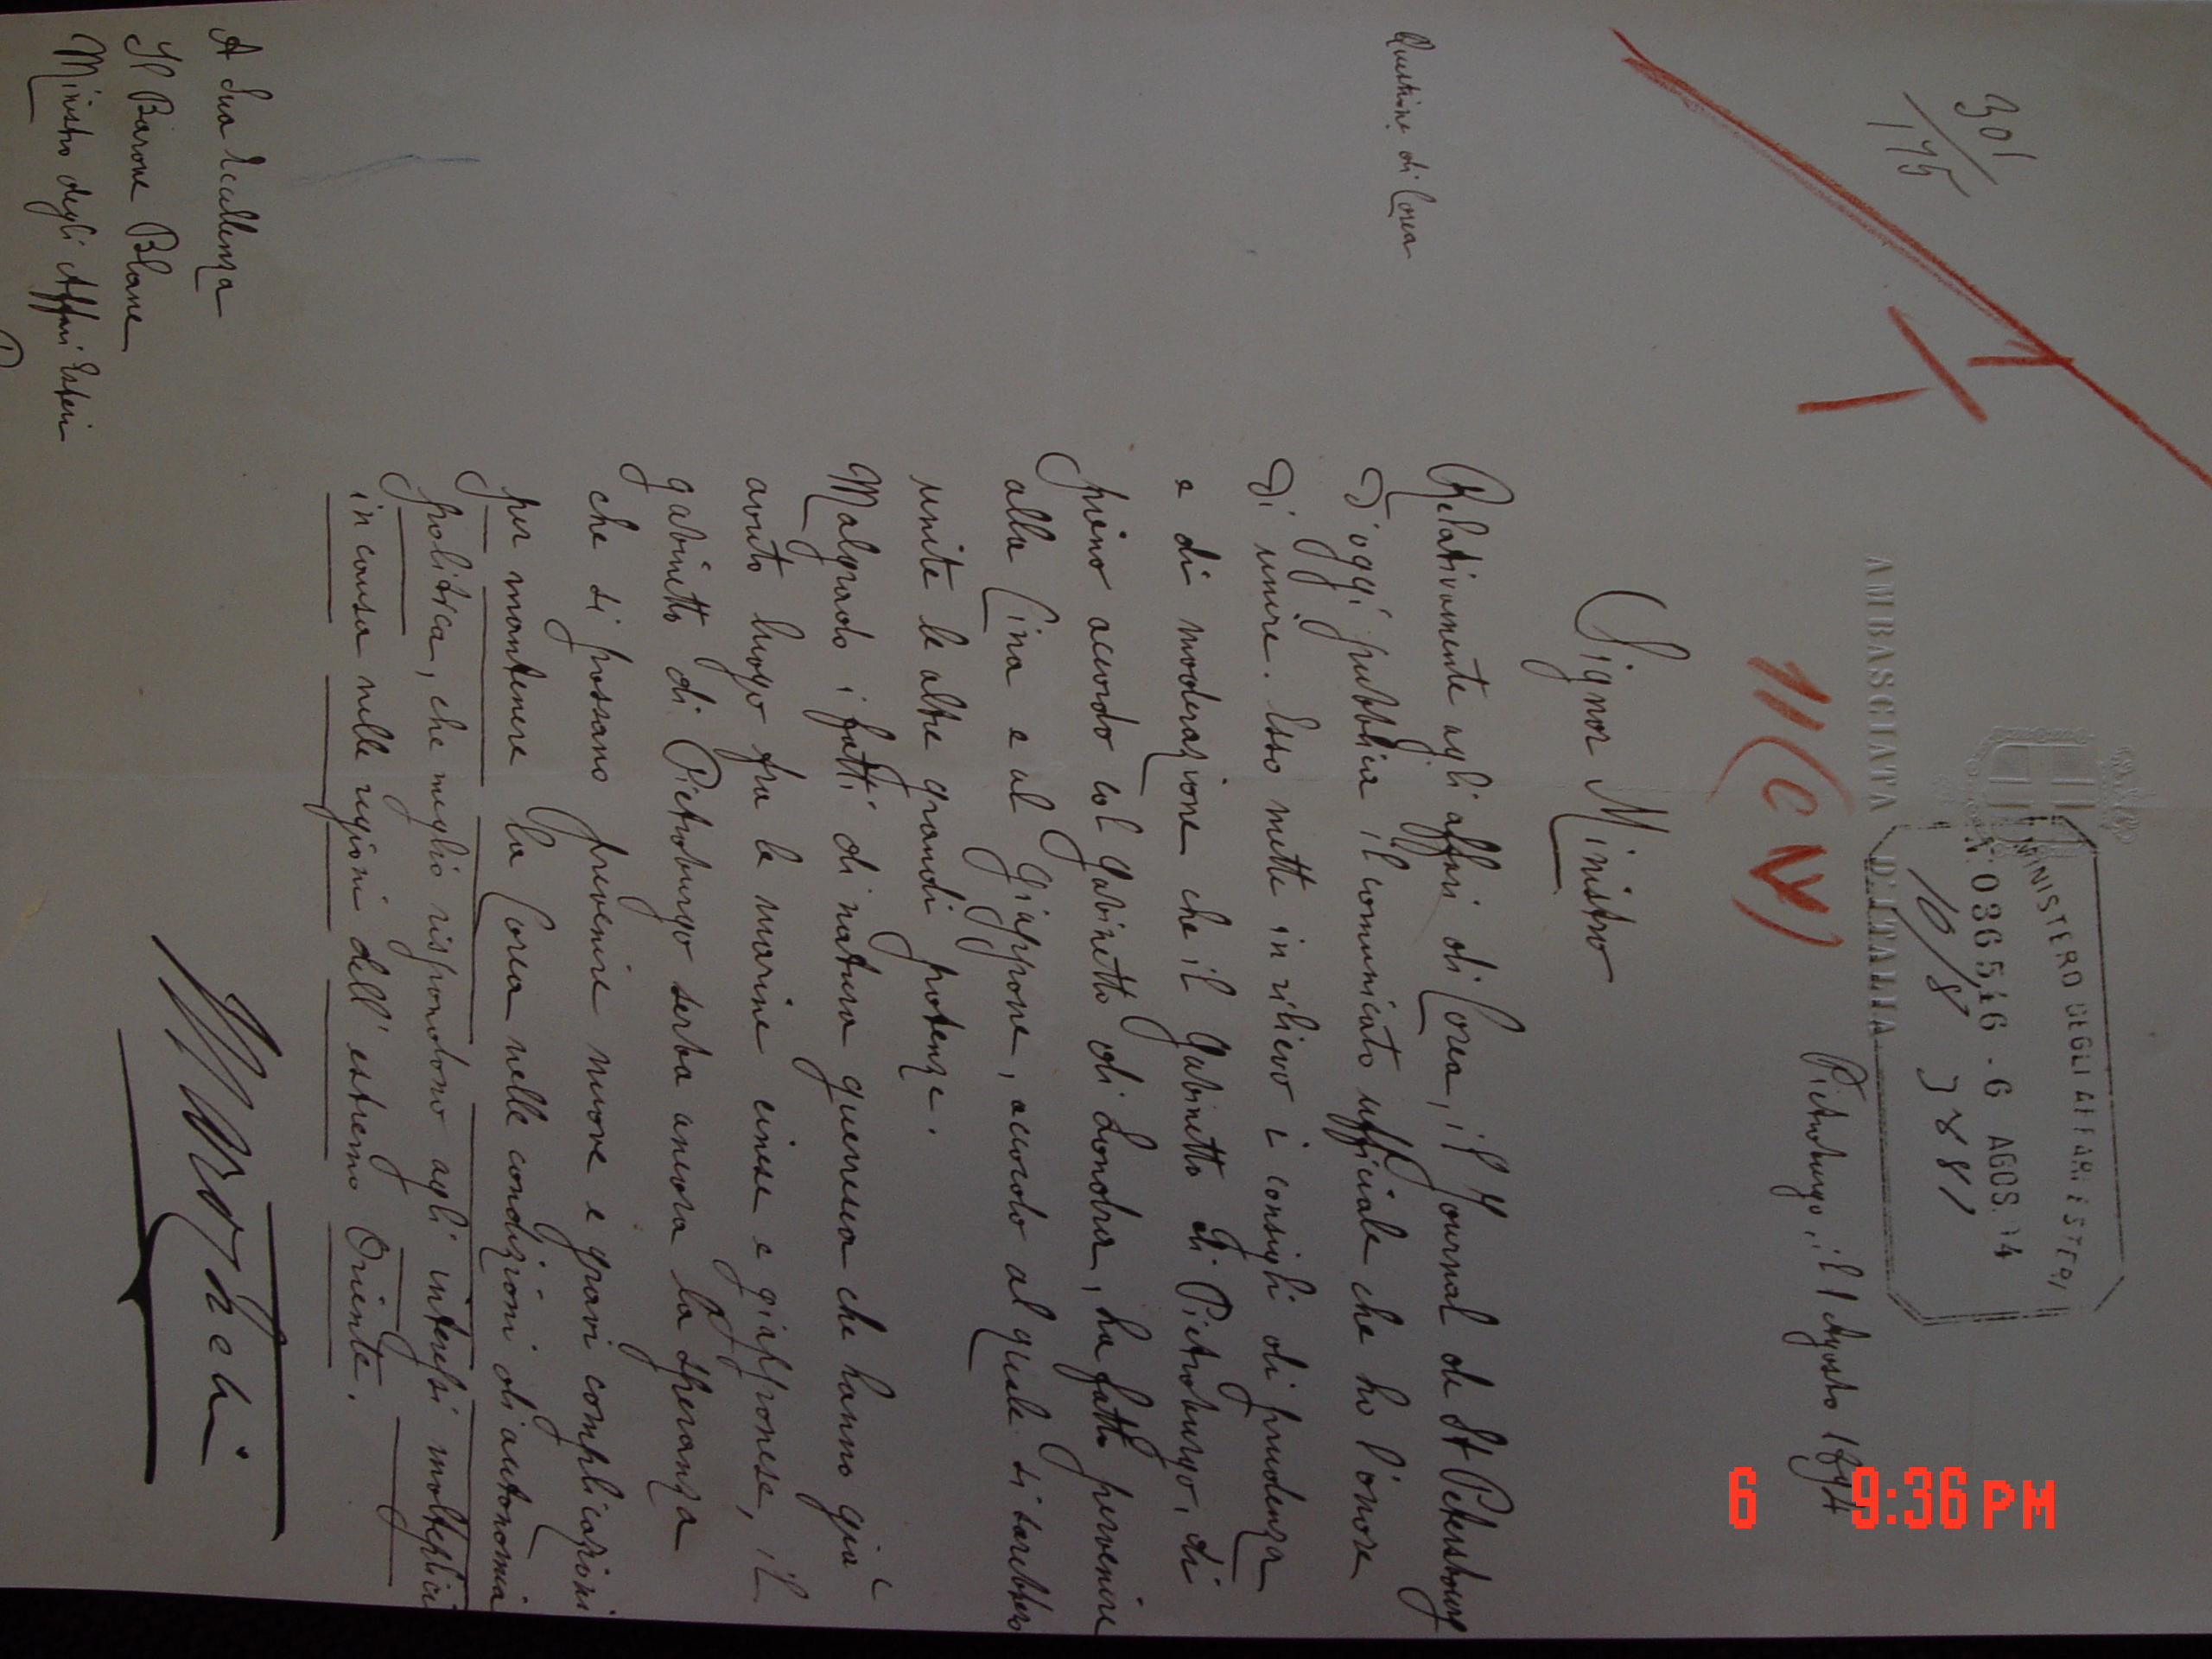 301
175
AMBASCIATA D'ITALIA
MINISTERO DEGLI AFFARI ESTERI
N. 036516 - 6 AGOS. 94
10/8 3881
11 (C N)
Pietroburgo, il 1 Agosto 1894
Questione di Corea
Signor Ministro
Relativamente agli affari di Corea, il "Journal de St Petersbourg
d'oggi pubblica il comunicato ufficiale che ho l'onore
di unire. Esso mette in rilievo i consigli di prudenza
e di moderazione che il Gabinetto di Pietroburgo, di
pieno accordo col Gabinetto di Londra, ha fatto pervenire
alla Cina e al Giappone, accordo al quale si sarebbero
unite le altre grandi potenze.
Malgrado i fatti di natura guerresca che hanno già
avuto luogo fra le marine cinese e giapponese, il
gabinetto di Pietroburgo serba ancora la speranza
che si possano prevenire nuove e gravi complicazioni
per mantenere la Corea nelle condizioni di autonomia
politica, che meglio rispondono agli interessi molteplici
in causa nelle regioni dell'estremo Oriente.
A Sua Eccellenza
Il Barone Blanc
Ministro degli Affari Esteri
6 9:36 PM